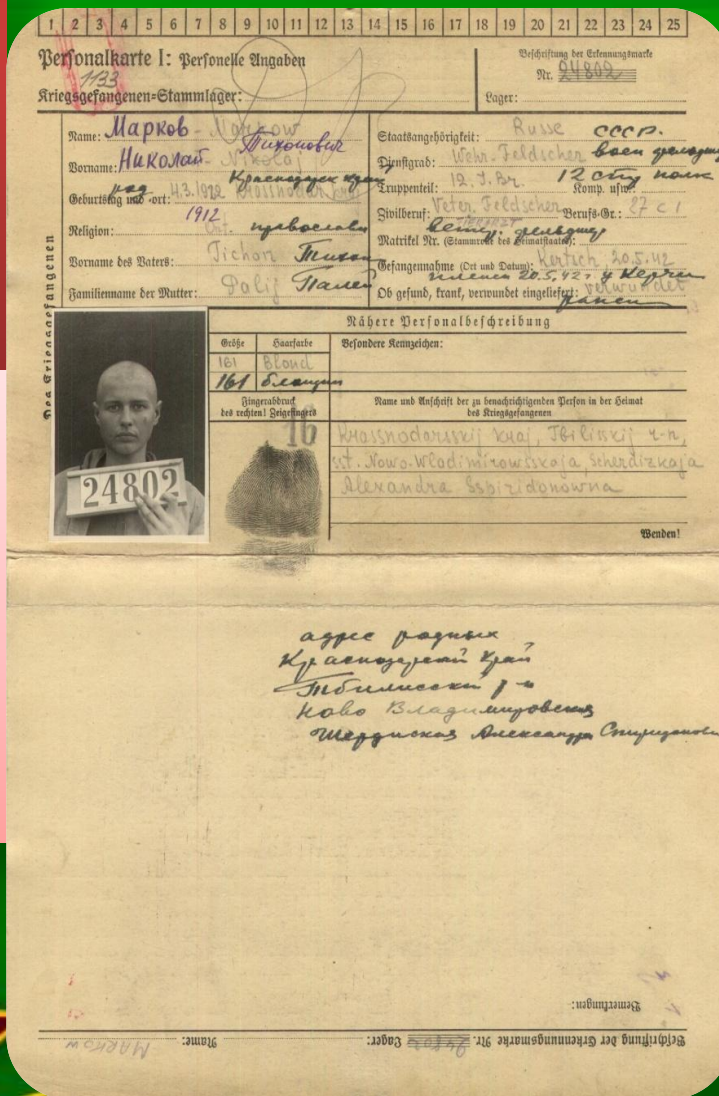 1 2 3 4 5 6 7 8 9 10 11 12 13 14 15 16 17 18 19 20 21 22 23 24 25
Personalkarte I: Personelle Angaben
1133
Kriegsgefangenen-Stammlager:
Beschriftung der Erkennungsmarke
Nr. 24802
Lager:
Des Kriegsgefangenen
Name: Марков - Markow
Тихонович
Vorname: Николай - Nikolaj
Краснодарск край
Geburtstag und -ort: 4.3.1912 Krassnodar
1912
Religion: Ort. православн
Vorname des Vaters: Tichon Тихон
Familienname der Mutter: Palij Палей
Staatsangehörigkeit: Russe СССР.
Dienstgrad: Wehr-Feldscher воен фельдшер
Truppenteil: 12.J.Br. 12 полк Komp. usw.:
Zivilberuf: Veter. Feldscher Berufs-Gr.: 27 c 1
ветер. фельдшер
Matrikel Nr. (Stammrolle des Heimatstaates):
Gefangennahme (Ort und Datum): Kertsch 20.5.42
пленен 20.5.42 г у Керчи
Ob gesund, krank, verwundet eingeliefert: verwundet
ранен
Nähere Personalbeschreibung
Größe Haarfarbe Besondere Kennzeichen:
161 Blond
161 блондин
Fingerabdruck
des rechten! Zeigefingers
Name und Anschrift der zu benachrichtigenden Person in der Heimat
des Kriegsgefangenen
16
Krassnodarsskij Kraj, Tbilisskij r-n,
st. Nowo-Wladimirowsskaja, Scherdizkaja
Alexandra Sspiridonowna
24802
Wenden!
адрес родных
Краснодарский край
Тбилисский р-н
Ново Владимировская
Шердицкая Александра Спиридоновн
Bemerkungen:
Beschriftung der Erkennungsmarke Nr. 24802 Lager: Name: MARKOW